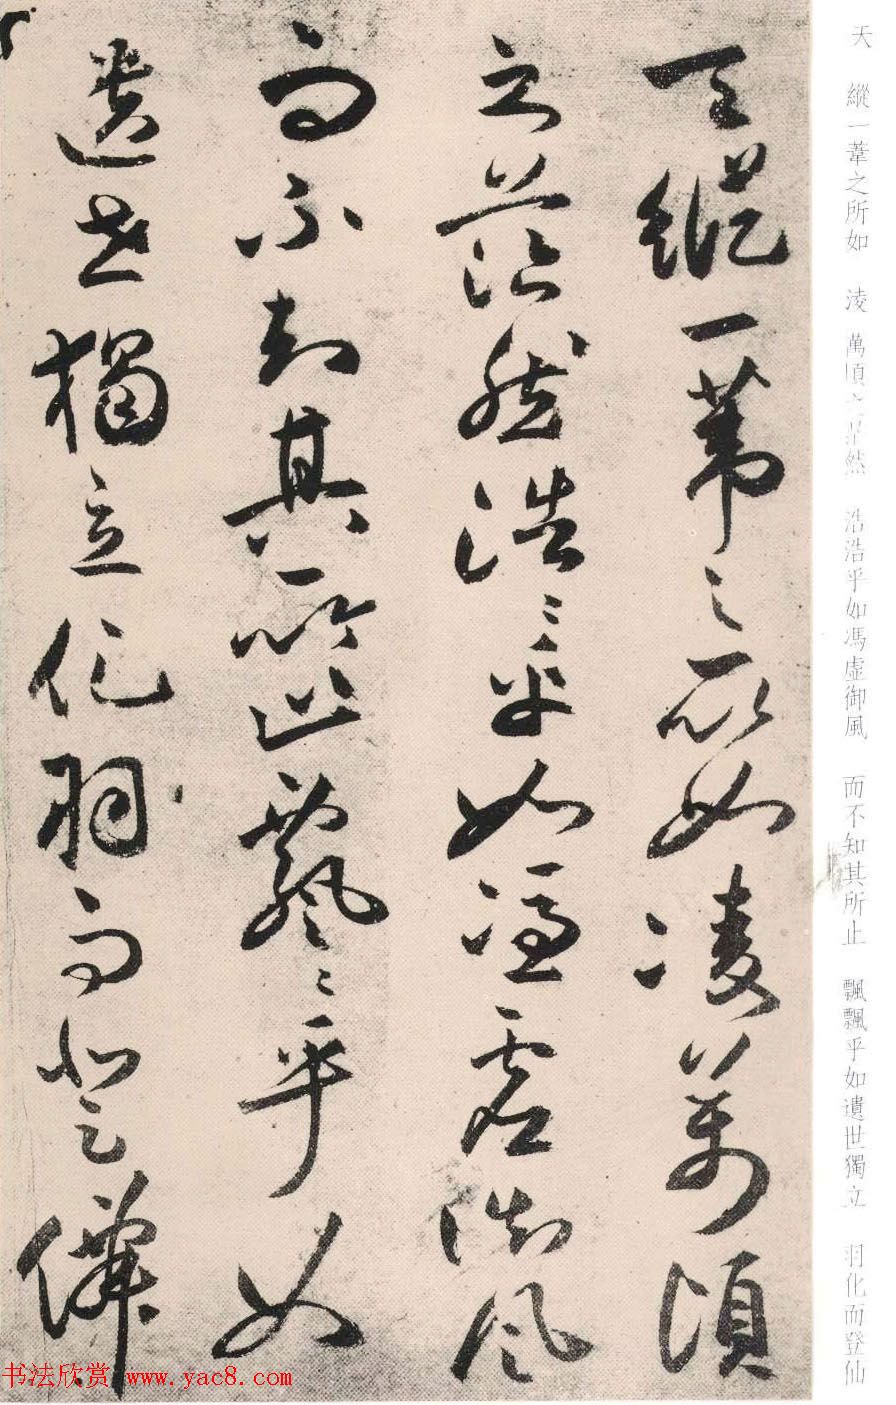 天 縱一葦之所如 淩萬頃之茫然 浩浩乎如馮虛御風 而不知其所止 飄飄乎如遺世獨立 羽化而登仙
天縱一葦之所如凌萬頃
之茫然浩〻乎如憑虛御風
而不知其所止飄〻乎如
遺世獨立化羽而登僊
书法欣赏 www.yac8.com